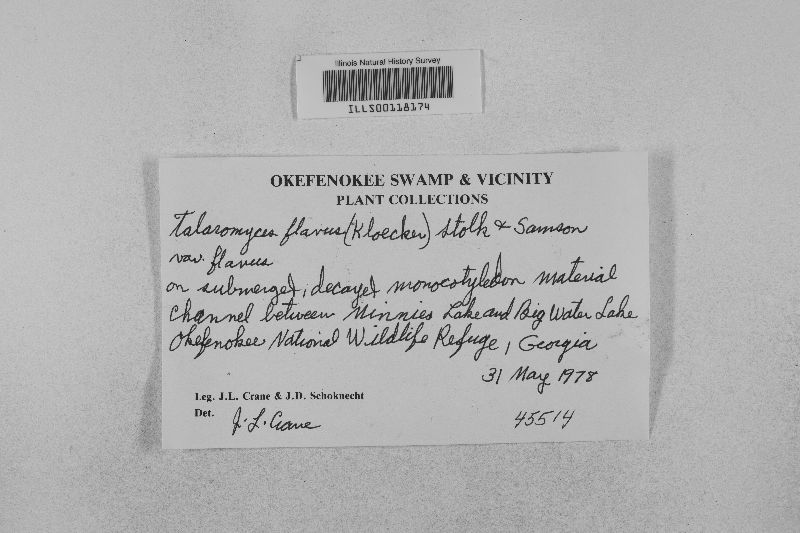 Illinois Natural History Survey
ILLS00118174
OKEFENOKEE SWAMP & VICINITY
PLANT COLLECTIONS
Talaromyces flavus (Kloecker) Stolk & Samson
var. flavus
on submerged, decayed monocotyledon material
Channel between Minnies Lake and Big Water Lake
Okefenokee National Wildlife Refuge, Georgia
31 May 1978
Leg. J.L. Crane & J.D. Schoknecht
Det. J. L. Crane
45514